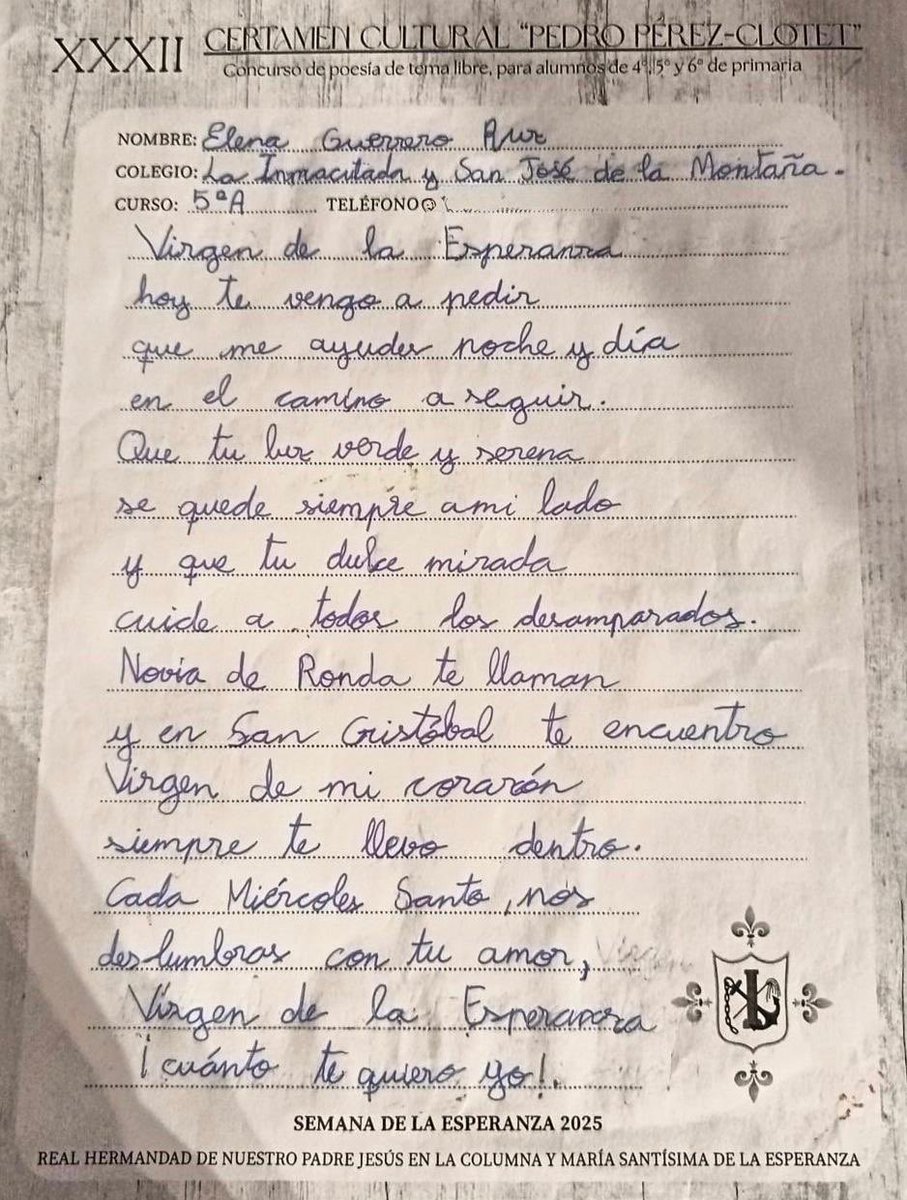 XXXII CERTAMEN CULTURAL "PEDRO PÉREZ-CLOTET"
Concurso de poesía de tema libre, para alumnos de 4º, 5º y 6º de primaria
NOMBRE: Elena Guerrero
COLEGIO: La Inmaculada y San José de la Montaña.
CURSO: 5ºA TELÉFONO
Virgen de la Esperanza
hoy te vengo a pedir
que me ayudes noche y día
en el camino a seguir.
Que tu luz verde y serena
se quede siempre a mi lado
y que tu dulce mirada
cuide a todos los desamparados.
Novia de Ronda te llaman
y en San Cristóbal te encuentro
Virgen de mi corazón
siempre te llevo dentro.
Cada Miércoles Santo, nos
deslumbras con tu amor, Virgen
Virgen de la Esperanza
¡cuánto te quiero yo!.
SEMANA DE LA ESPERANZA 2025
REAL HERMANDAD DE NUESTRO PADRE JESÚS EN LA COLUMNA Y MARÍA SANTÍSIMA DE LA ESPERANZA